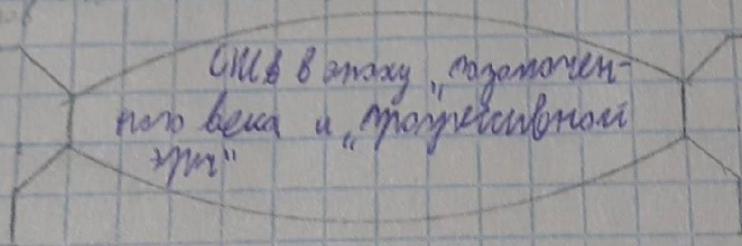 США в эпоху „позолочен-
ного века и „прогрессивной
эры"